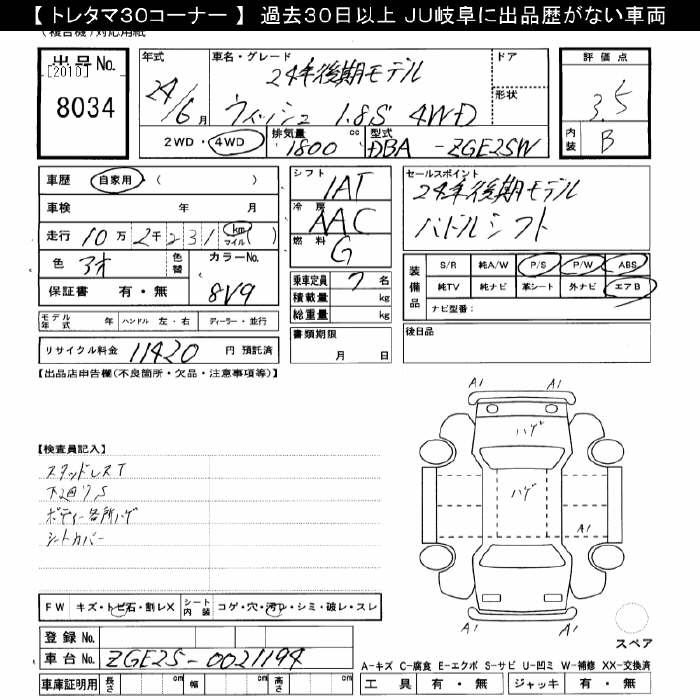 【 トレタマ30コーナー 】 過去30日以上 JU岐阜に出品歴がない車両
(複合機)対応用紙
出品No.
[2010]
8034
年式 車名・グレード ドア
24年後期モデル
24/6月 ウィッシュ 1.8S 4WD 形状
2WD・4WD 排気量 1800 cc 型式 DBA - ZGE25W
評価点
3.5
内装 B
車歴 自家用 (
車検 年 月
走行 10万 2千 2 3 1 km マイル ( )
色 アオ 色替 カラーNo. 8V9
保証書 有・無
シフト 1AT
冷房 AAC
燃料 G
乗車定員 7 名
積載量 kg
総重量 kg
セールスポイント
24年後期モデル
パドルシフト
装備品 S/R 純A/W P/S P/W ABS
純TV 純ナビ 革シート 外ナビ エアB
ナビ型番:
モデル年式 年 ハンドル 左・右 ディーラー・並行
書類期限 月 日
後日品
リサイクル料金 11420 円 預託済
【出品店申告欄(不良箇所・欠品・注意事項等)】
A1 A1
ハゲ
【検査員記入】
スタッドレスT
下回りS
ボディー各所ハゲ
シートカバー
ハゲ
A1
FW キズ・トビ石・割レX シート内装 コゲ・穴・汚レ・シミ・破レ・スレ
A1 A1
スペア
登録No.
車台No. ZGE25-0021194
A-キズ C-腐食 E-エクボ S-サビ U-凹ミ W-補修 XX-交換済
車庫証明用 長さ cm 幅 cm 高さ cm 工具 有・無 ジャッキ 有・無